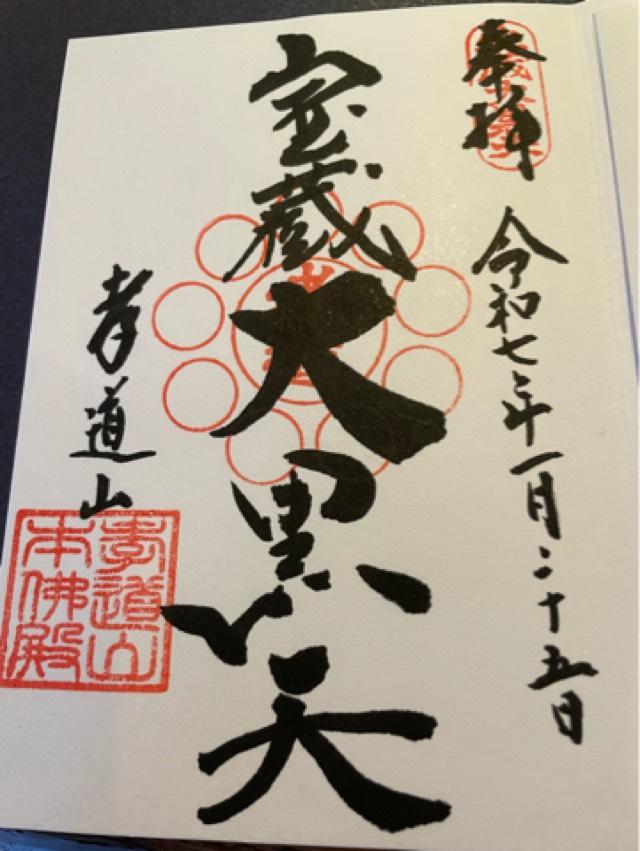 奉拝
令和七年一月二十五日
宝蔵大黒天
孝道山
孝道山
本佛殿